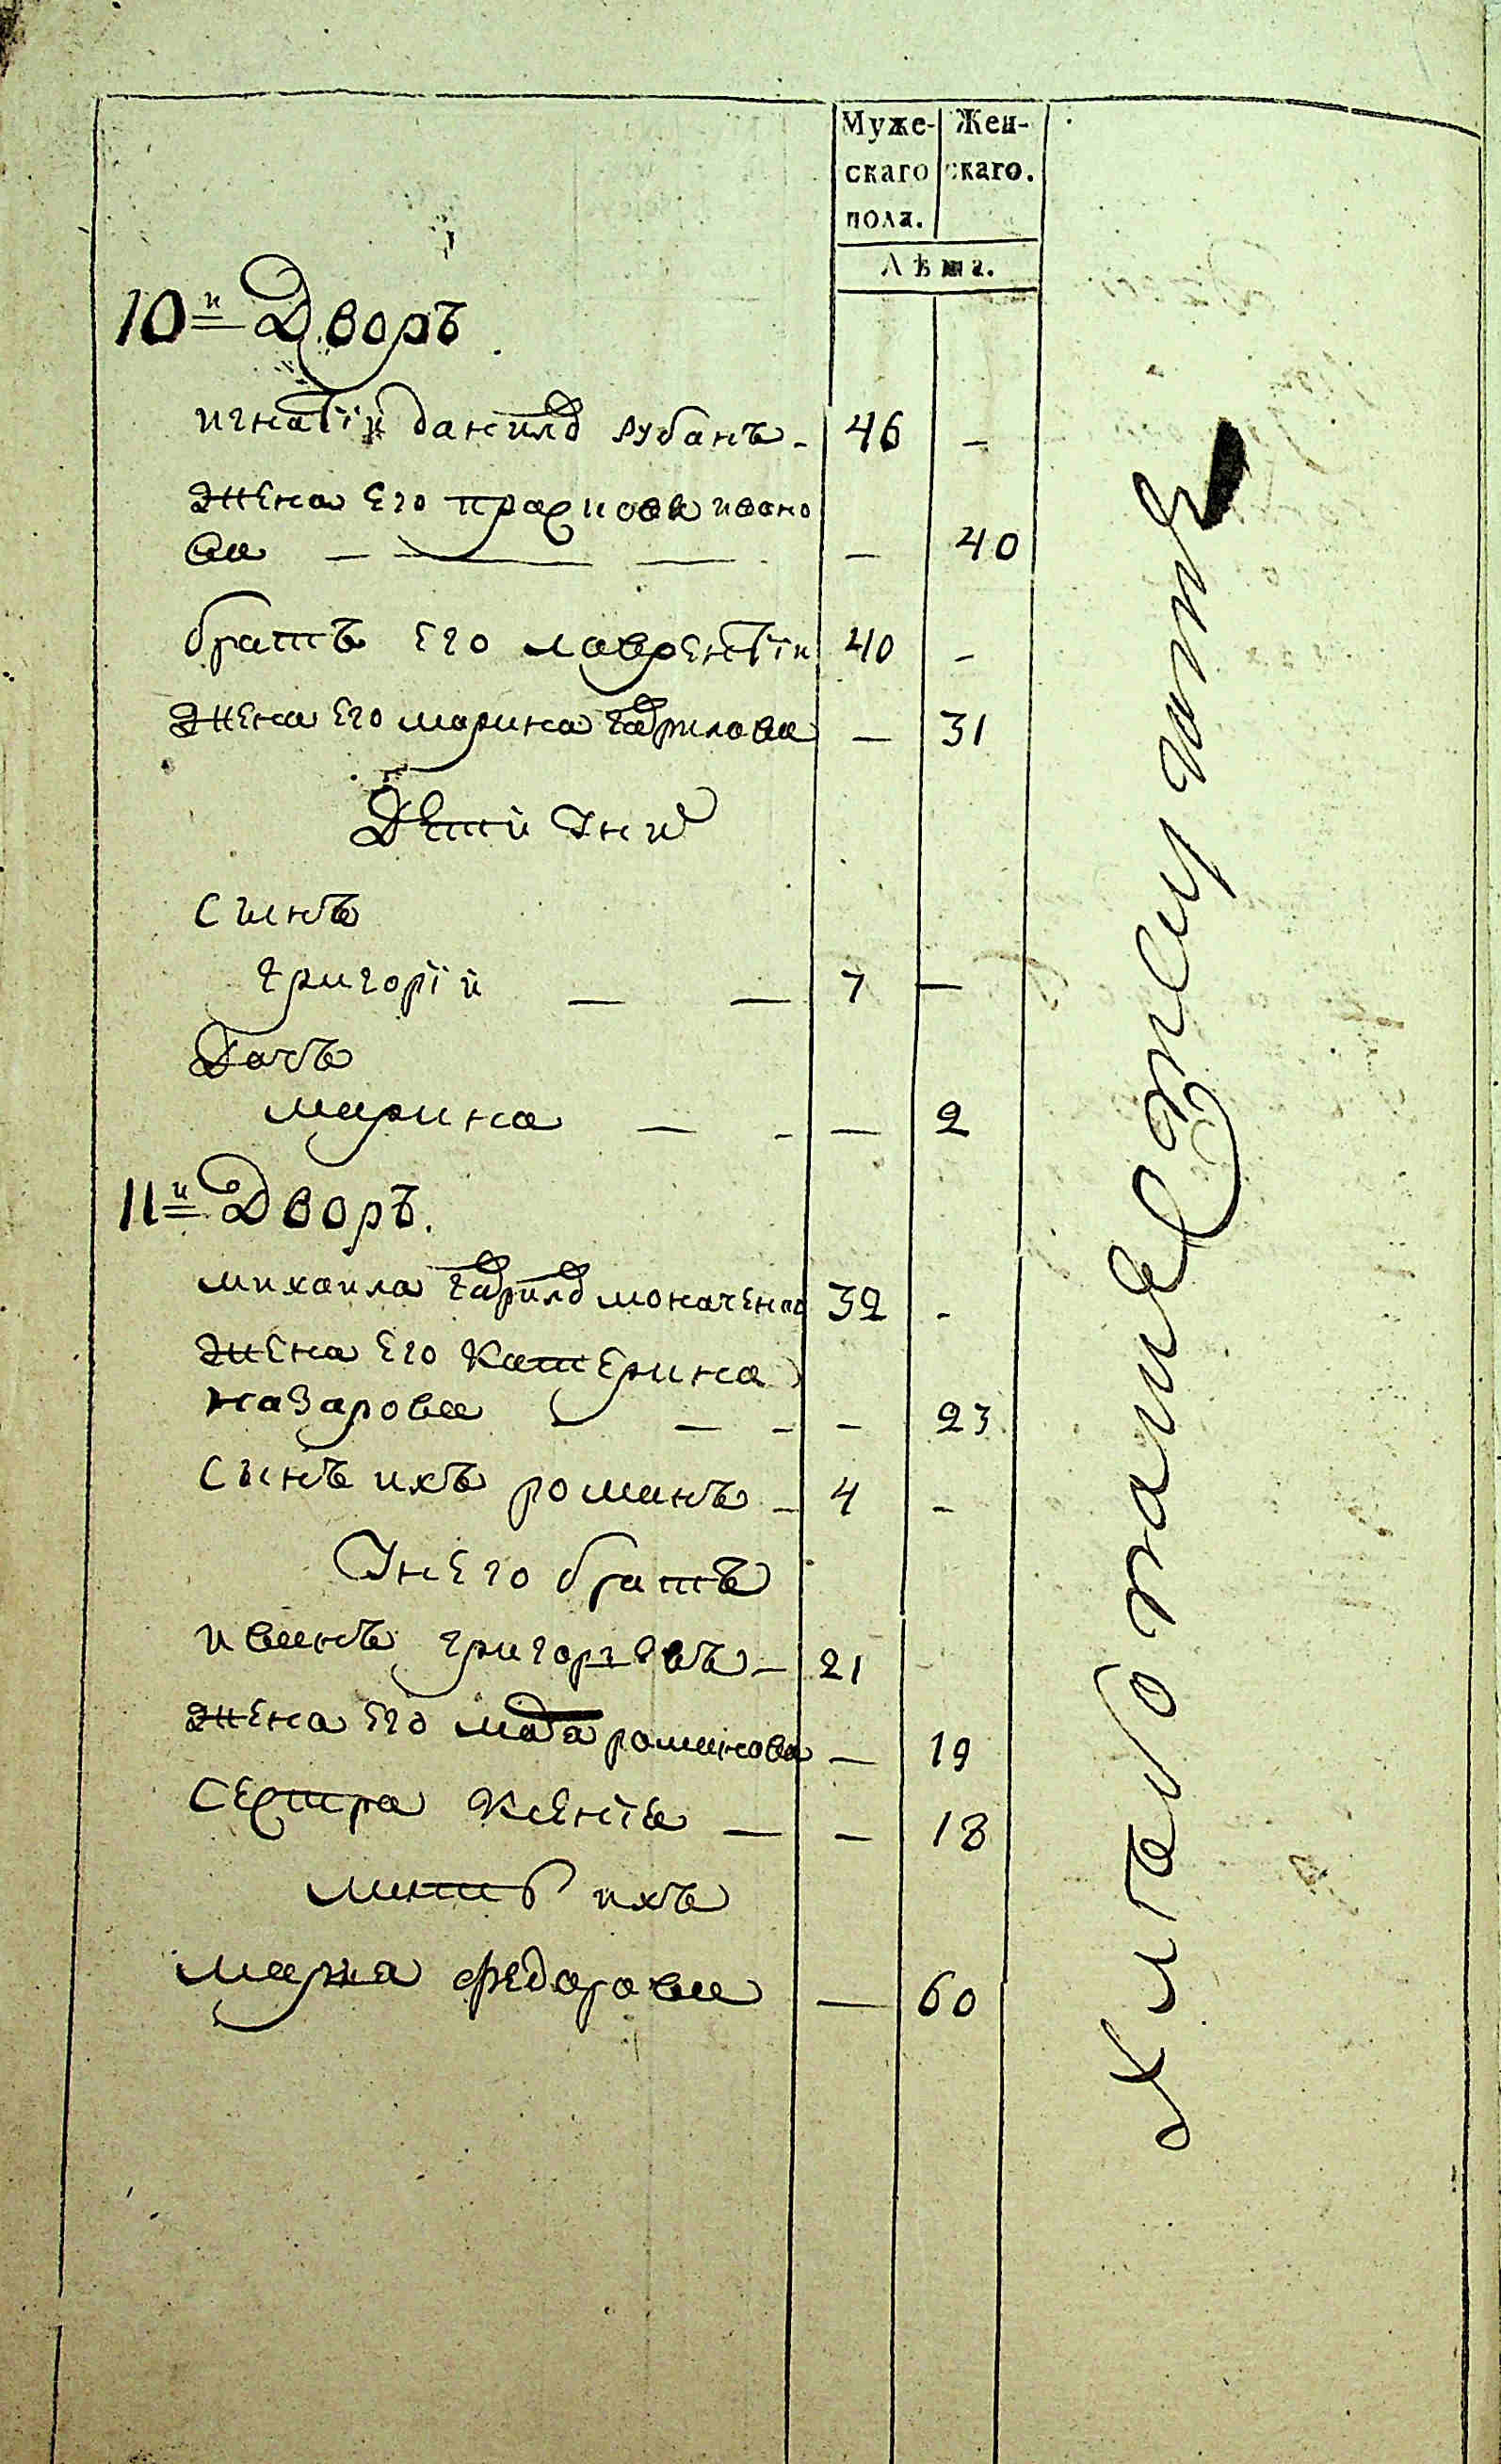 Муже- Жен-
скаго скаго.
пола.
Лѣта.
10й Дворъ
игнатїй данилов рубанъ - 46 -
жена его прасковя ивано
ва - - - - 40
братъ его лаврентїй 40 -
жена его марина гаврилова - 31
Дѣтй Уни
сынъ
григорїй - - 7 -
Дочъ
марина - - - 2
11й Дворъ.
михаила гаврилов моначенко 32 -
жена его катерина
назарова - - - 23
сынъ ихъ романъ - 4 -
Унего братъ
иванъ григорьевъ - 21
жена его романова - 19
сестра - - 18
мать ихъ
федорова - 60